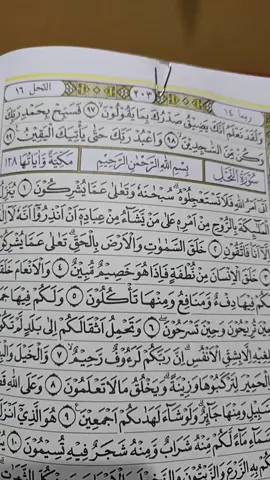 ربما ١٤ ٢٠٣ النحل ١٦
وَلَقَدْ نَعْلَمُ أَنَّكَ يَضِيقُ صَدْرُكَ بِمَا يَقُولُونَ ٩٧ فَسَبِّحْ بِحَمْدِ رَبِّكَ
وَكُنْ مِنَ السَّاجِدِينَ ٩٨ وَاعْبُدْ رَبَّكَ حَتَّى يَأْتِيَكَ الْيَقِينُ ٩٩
سُورَةُ النَّحْلِ بِسْمِ اللَّهِ الرَّحْمَنِ الرَّحِيمِ مَكِّيَّةٌ وَآيَاتُهَا ١٢٨
أَتَى أَمْرُ اللَّهِ فَلَا تَسْتَعْجِلُوهُ سُبْحَانَهُ وَتَعَالَى عَمَّا يُشْرِكُونَ ١ يُنَزِّلُ
الْمَلَائِكَةَ بِالرُّوحِ مِنْ أَمْرِهِ عَلَى مَنْ يَشَاءُ مِنْ عِبَادِهِ أَنْ أَنْذِرُوا أَنَّهُ لَا إِلَهَ
إِلَّا أَنَا فَاتَّقُونِ ٢ خَلَقَ السَّمَاوَاتِ وَالْأَرْضَ بِالْحَقِّ تَعَالَى عَمَّا يُشْرِكُونَ
٣ خَلَقَ الْإِنْسَانَ مِنْ نُطْفَةٍ فَإِذَا هُوَ خَصِيمٌ مُبِينٌ ٤ وَالْأَنْعَامَ خَلَقَهَا
لَكُمْ فِيهَا دِفْءٌ وَمَنَافِعُ وَمِنْهَا تَأْكُلُونَ ٥ وَلَكُمْ فِيهَا جَمَالٌ
حِينَ تُرِيحُونَ وَحِينَ تَسْرَحُونَ ٦ وَتَحْمِلُ أَثْقَالَكُمْ إِلَى بَلَدٍ لَمْ تَكُونُوا
بَالِغِيهِ إِلَّا بِشِقِّ الْأَنْفُسِ إِنَّ رَبَّكُمْ لَرَءُوفٌ رَحِيمٌ ٧ وَالْخَيْلَ وَالْبِغَالَ
وَالْحَمِيرَ لِتَرْكَبُوهَا وَزِينَةً وَيَخْلُقُ مَا لَا تَعْلَمُونَ ٨ وَعَلَى اللَّهِ قَصْدُ
السَّبِيلِ وَمِنْهَا جَائِرٌ وَلَوْ شَاءَ لَهَدَاكُمْ أَجْمَعِينَ ٩ هُوَ الَّذِي أَنْزَلَ
مِنَ السَّمَاءِ مَاءً لَكُمْ مِنْهُ شَرَابٌ وَمِنْهُ شَجَرٌ فِيهِ تُسِيمُونَ ١٠
لَكُمْ بِهِ الزَّرْعَ وَالزَّيْتُونَ وَالنَّخِيلَ